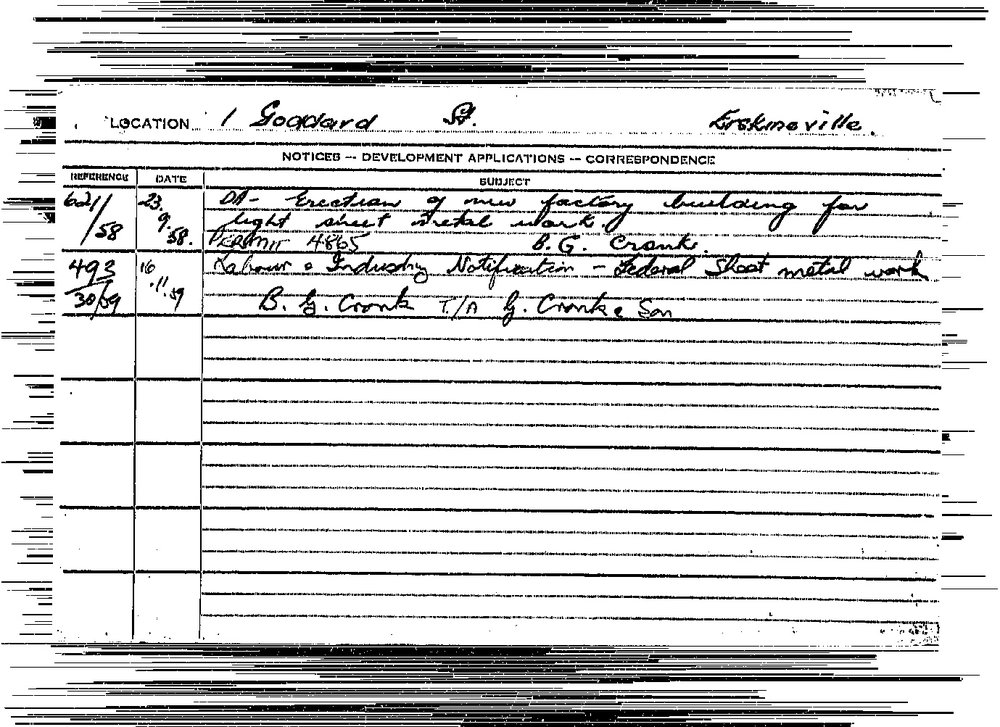 LOCATION 1 Goddard St. Erskineville.
NOTICES -- DEVELOPMENT APPLICATIONS -- CORRESPONDENCE
REFERENCE DATE SUBJECT
621/ 23. DA - Erection of new factory building for
/58 9. light sheet metal work
58. PERMIT 4865 B.G. Cronk.
493 16 Labour & Industry Notification - Federal Sheet metal work
30/59 .11.59 B. G. Cronk T/A G. Cronk & Son